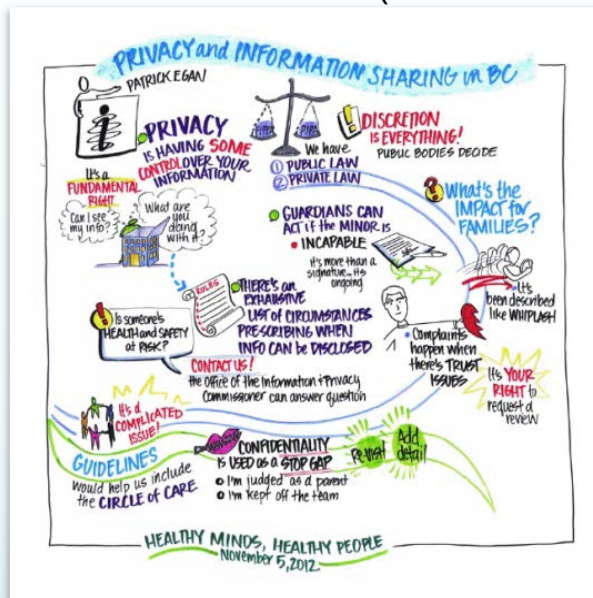 PRIVACY and INFORMATION SHARING in BC
PATRICK EGAN
i
PRIVACY
IS HAVING SOME
CONTROL OVER YOUR
INFORMATION
It's a
FUNDAMENTAL
RIGHT
Can I see
my info?
What are
you
doing
with it?
We have
① PUBLIC LAW
② PRIVATE LAW
DISCRETION
IS EVERYTHING!
PUBLIC BODIES DECIDE
GUARDIANS CAN
ACT if the MINOR is
INCAPABLE
it's more than a
signature... its
ongoing
What's the
IMPACT for
FAMILIES?
It's
been described
like WHIPLASH
RULES
THERE'S an
EXHAUSTIVE
LIST of CIRCUMSTANCES
PRESCRIBING WHEN
INFO CAN be DISCLOSED
Is someone's
HEALTH and SAFETY
at RISK?
CONTACT US!
the Office of the Information & Privacy
Commissioner can answer question
Complaints
happen when
there's TRUST
ISSUES
It's YOUR
RIGHT to
request a
review
It's a
COMPLICATED
ISSUE!
GUIDELINES
would help us include
the CIRCLE of CARE
CONFIDENTIALITY
is USED as a STOP GAP
I'm judged as a parent
I'm kept off the team
Add
detail
HEALTHY MINDS, HEALTHY PEOPLE
November 5, 2012